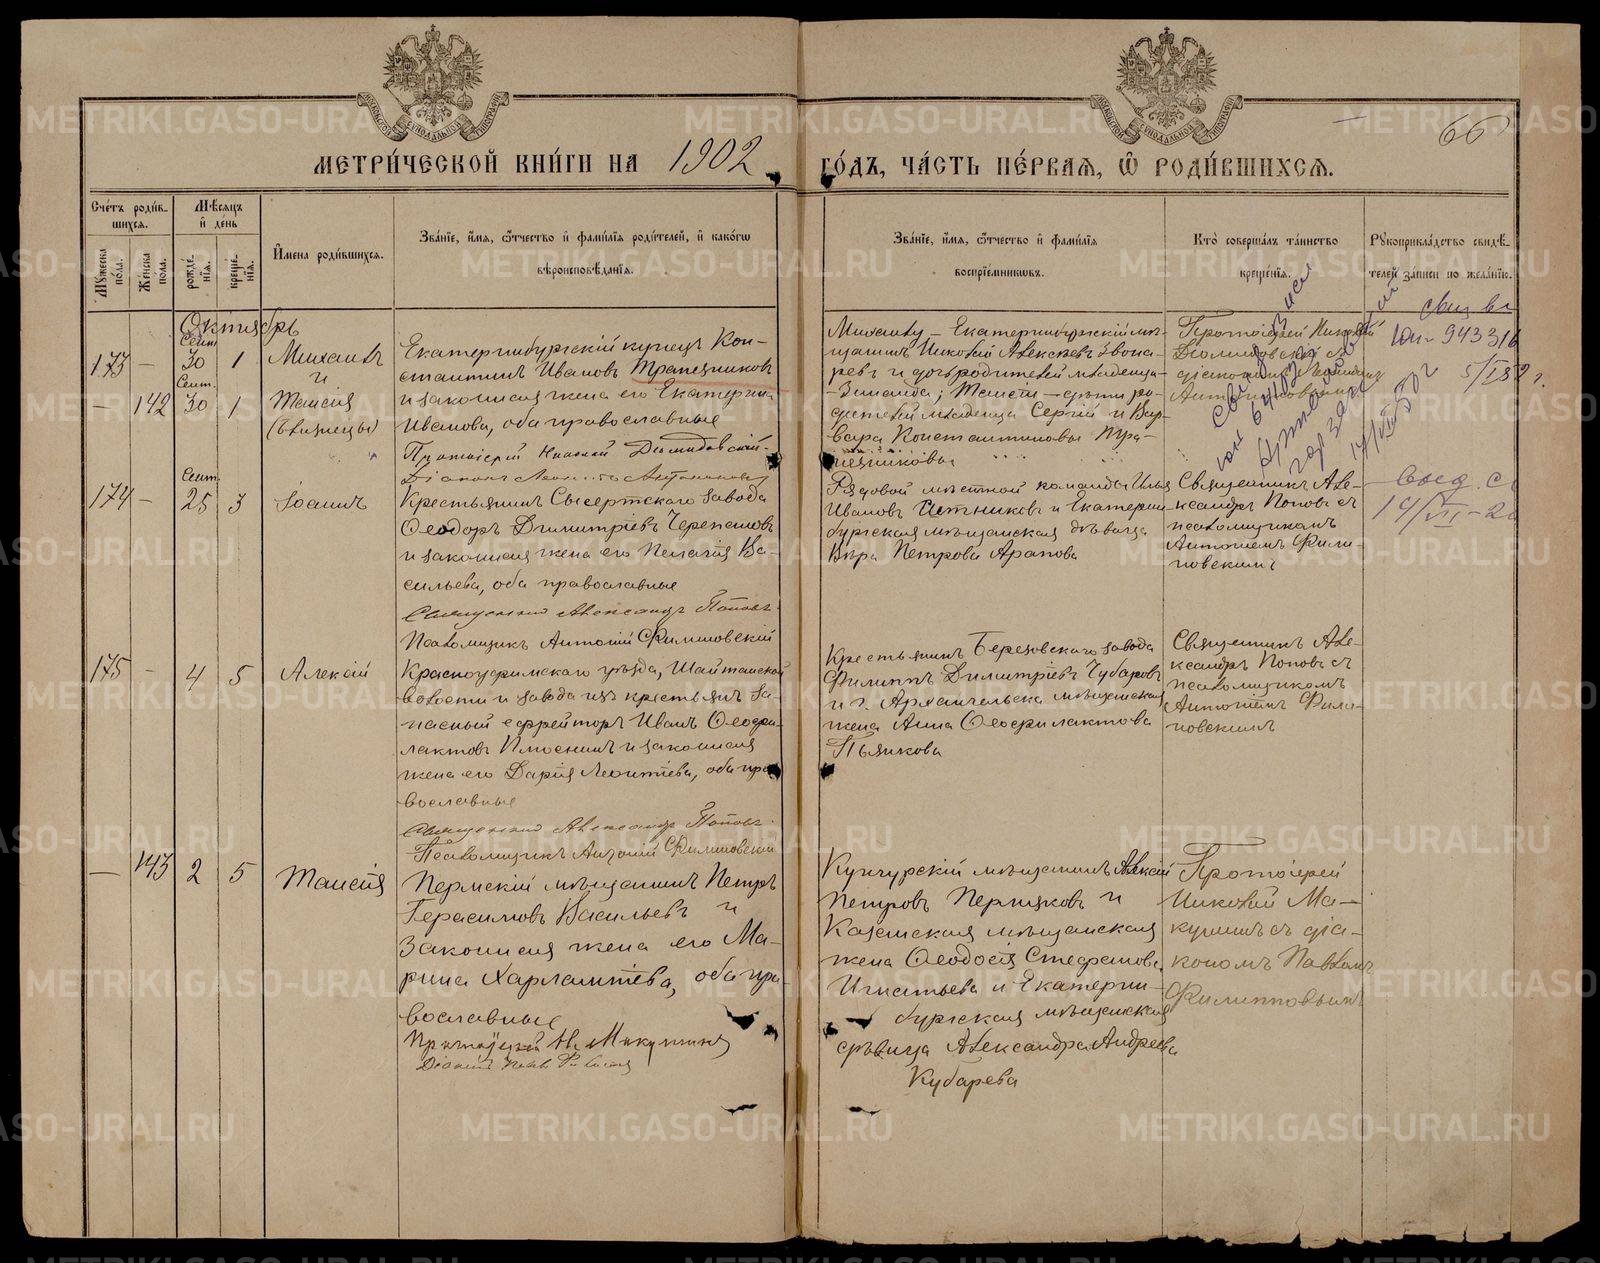 МЕТРИ́ЧЕСКОЙ КНИ́ГИ НА 1902 ГО́ДЪ, ЧА́СТЬ ПЕ́РВАѦ, Ѡ҆ РОДИ́ВШИХСѦ.
66
Сче́тъ роди́в-
шихсѧ.
Мѣсѧцъ
и҆ де́нь
Му́жеска
по́ла.
Же́нска
по́ла.
рожде́-
нїѧ.
креще́-
нїѧ.
И҆мена роди́вшихсѧ.
Зва́нїе, и҆́мѧ, ѻ҆́тчество и҆ фами́лїѧ роди́телей, и҆ како́гѡ
вѣроисповѣ́данїѧ.
Зва́нїе, и҆́мѧ, ѻ҆́тчество и҆ фами́лїѧ
воспрїе́мниковъ.
Кто̀ соверша́лъ та́инство
креще́нїѧ.
Рꙋкоприкла́дство свидѣ́-
телей за́писи по жела́нїю.
Октябрь
173 — Сент. 30 1 Михаилъ
и
— 142 Сент. 30 1 Таисія
(близнецы)
Екатеринбургскій купецъ Кон-
стантинъ Ивановъ Трапезниковъ
и законная жена его Екатерина
Иванова, оба православные
Протоіерей Николай Диомидовскій
Діаконъ
Михаилу — Екатеринбургскій мѣ-
щанинъ Николай Алексѣевъ Звона-
ревъ и дочь родителей младенца
Зинаида; Таисіи — дѣти ро-
дителей младенца Сергій и Вар-
вара Константиновы Тра-
пезниковы
Протоіерей Николай
Диомидовскій съ
діакономъ
юю 943316
5/I 52 г.
174 — Сент. 25 3 Іоаннъ
Крестьянинъ Сысертскаго завода
Ѳеодоръ Димитріевъ Черепановъ
и законная жена его Пелагія Ва-
сильева, оба православные
Священникъ Александръ Поповъ
Псаломщикъ Антоній Филиповскій
Рядовой мѣстной команды Илья
Ивановъ и Екатерин-
бургская мѣщанская дѣвица
Вѣра Петрова Арапова
Священникъ Але-
ксандръ Поповъ съ
псаломщикомъ
Антоніемъ Фили-
повскимъ
175 — 4 5 Алексій
Красноуфимскаго уѣзда, Шайтанской
волости и завода изъ крестьянъ за-
пасный ефрейторъ Иванъ Ѳеофи-
лактовъ и законная
жена его Дарія Леонтіева, оба пра-
вославные
Священникъ Александръ Поповъ
Псаломщикъ Антоній Филиповскій
Крестьянинъ Березовскаго завода
Филиппъ Димитріевъ Чубаровъ
и г. Архангельска мѣщанская
жена Анна Ѳеофилактова
Пьянкова
Священникъ Але-
ксандръ Поповъ съ
псаломщикомъ
Антоніемъ Фили-
повскимъ
— 143 2 5 Таисія
Пермскій мѣщанинъ Петръ
Герасимовъ Васильевъ и
законная жена его Ма-
рина Харлампіева, оба пра-
вославные
Протоіерей Н. Макушинъ
Кунгурскій мѣщанинъ Алексій
Петровъ Пермяковъ и
Казанская мѣщанская
жена Ѳеодосія Стефанова
Игнатьева и Екатерин-
бургская мѣщанская
дѣвица Александра Андреева
Кубарева
Протоіерей
Николай Ма-
кушинъ съ діа-
кономъ Павломъ
Филипповымъ
METRIKI.GASO-URAL.RU